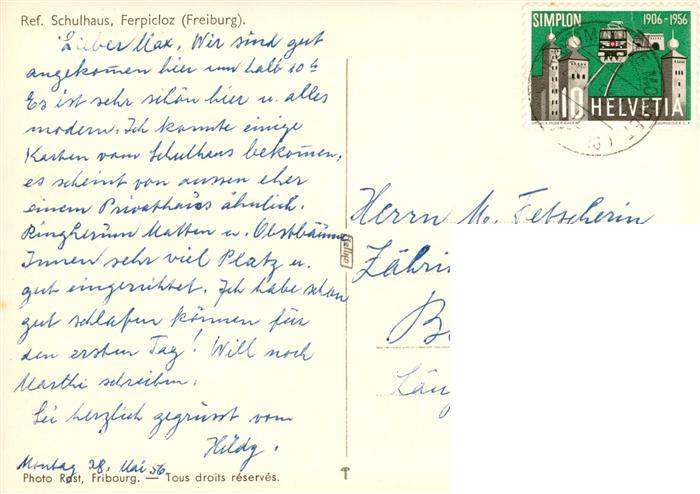 Ref. Schulhaus, Ferpicloz (Freiburg).
Lieber Max, Wir sind gut
angekommen hier um halb 10h
Es ist sehr schön hier u. alles
modern. Ich konnte einige
Karten vom Schulhaus bekommen,
es scheint von aussen eher
einem Privathaus ähnlich.
Ringherum Matten u. Obstbäume
Innen sehr viel Platz u.
gut eingerichtet. Ich habe schon
gut schlafen können für
den ersten Tag! Will noch
Marthi schreiben.
Sei herzlich gegrüsst vom
Hildy.
Montag 28. Mai 56.
Photo Rast, Fribourg. — Tous droits réservés.
SIMPLON 1906-1956
10 HELVETIA
Herrn M. Fetscherin
Zähri
Be
Läng